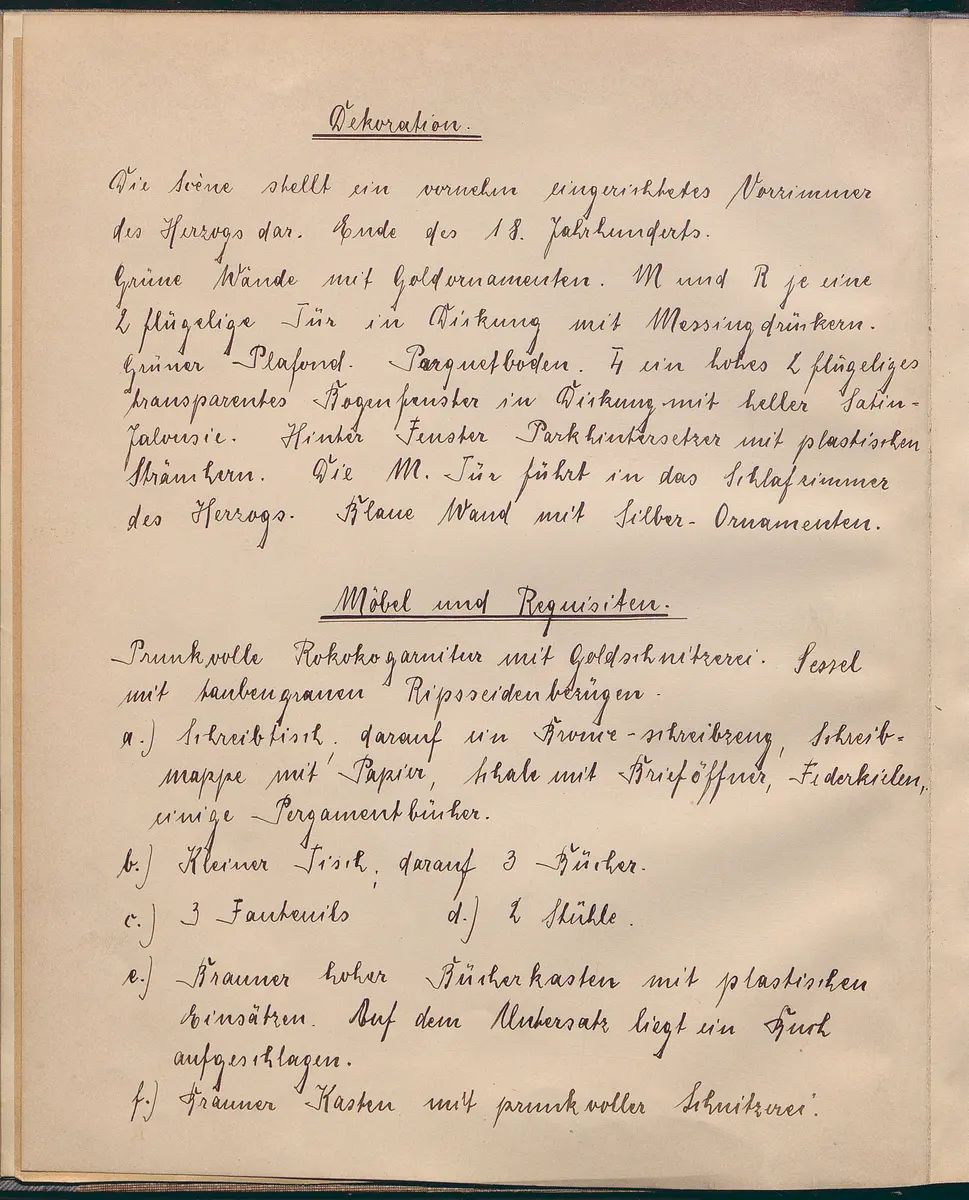 Dekoration.
Die Scène stellt ein vornehm eingerichtetes Vorzimmer
des Herzogs dar. Ende des 18. Jahrhunderts.
Grüne Wände mit Goldornamenten. M und R je eine
2 flügelige Tür in Dickung mit Messingdrückern.
Grüner Plafond. Parquetboden. I ein hohes 2 flügeliges
transparentes Bogenfenster in Dickung mit heller Satin-
Jalousie. Hinter Fenster Parkhintersetzer mit plastischen
Sträuchern. Die M. Tür führt in das Schlafzimmer
des Herzogs. Blaue Wand mit Silber-Ornamenten.
Möbel und Requisiten.
Prunkvolle Rokokogarnitur mit Goldschnitzerei. Sessel
mit taubengrauen Ripsseidenbezügen.
a.) Schreibtisch, darauf ein Bronce-schreibzeug, Schreib-
mappe mit Papier, Schale mit Brieföffner, Federkielen,
einige Pergamentbücher.
b.) Kleiner Tisch, darauf 3 Bücher.
c.) 3 Fauteuils d.) 2 Stühle.
e.) Brauner hoher Bücherkasten mit plastischen
Einsätzen. Auf dem Untersatz liegt ein Buch
aufgeschlagen.
f.) Brauner Kasten mit prunkvoller Schnitzerei.